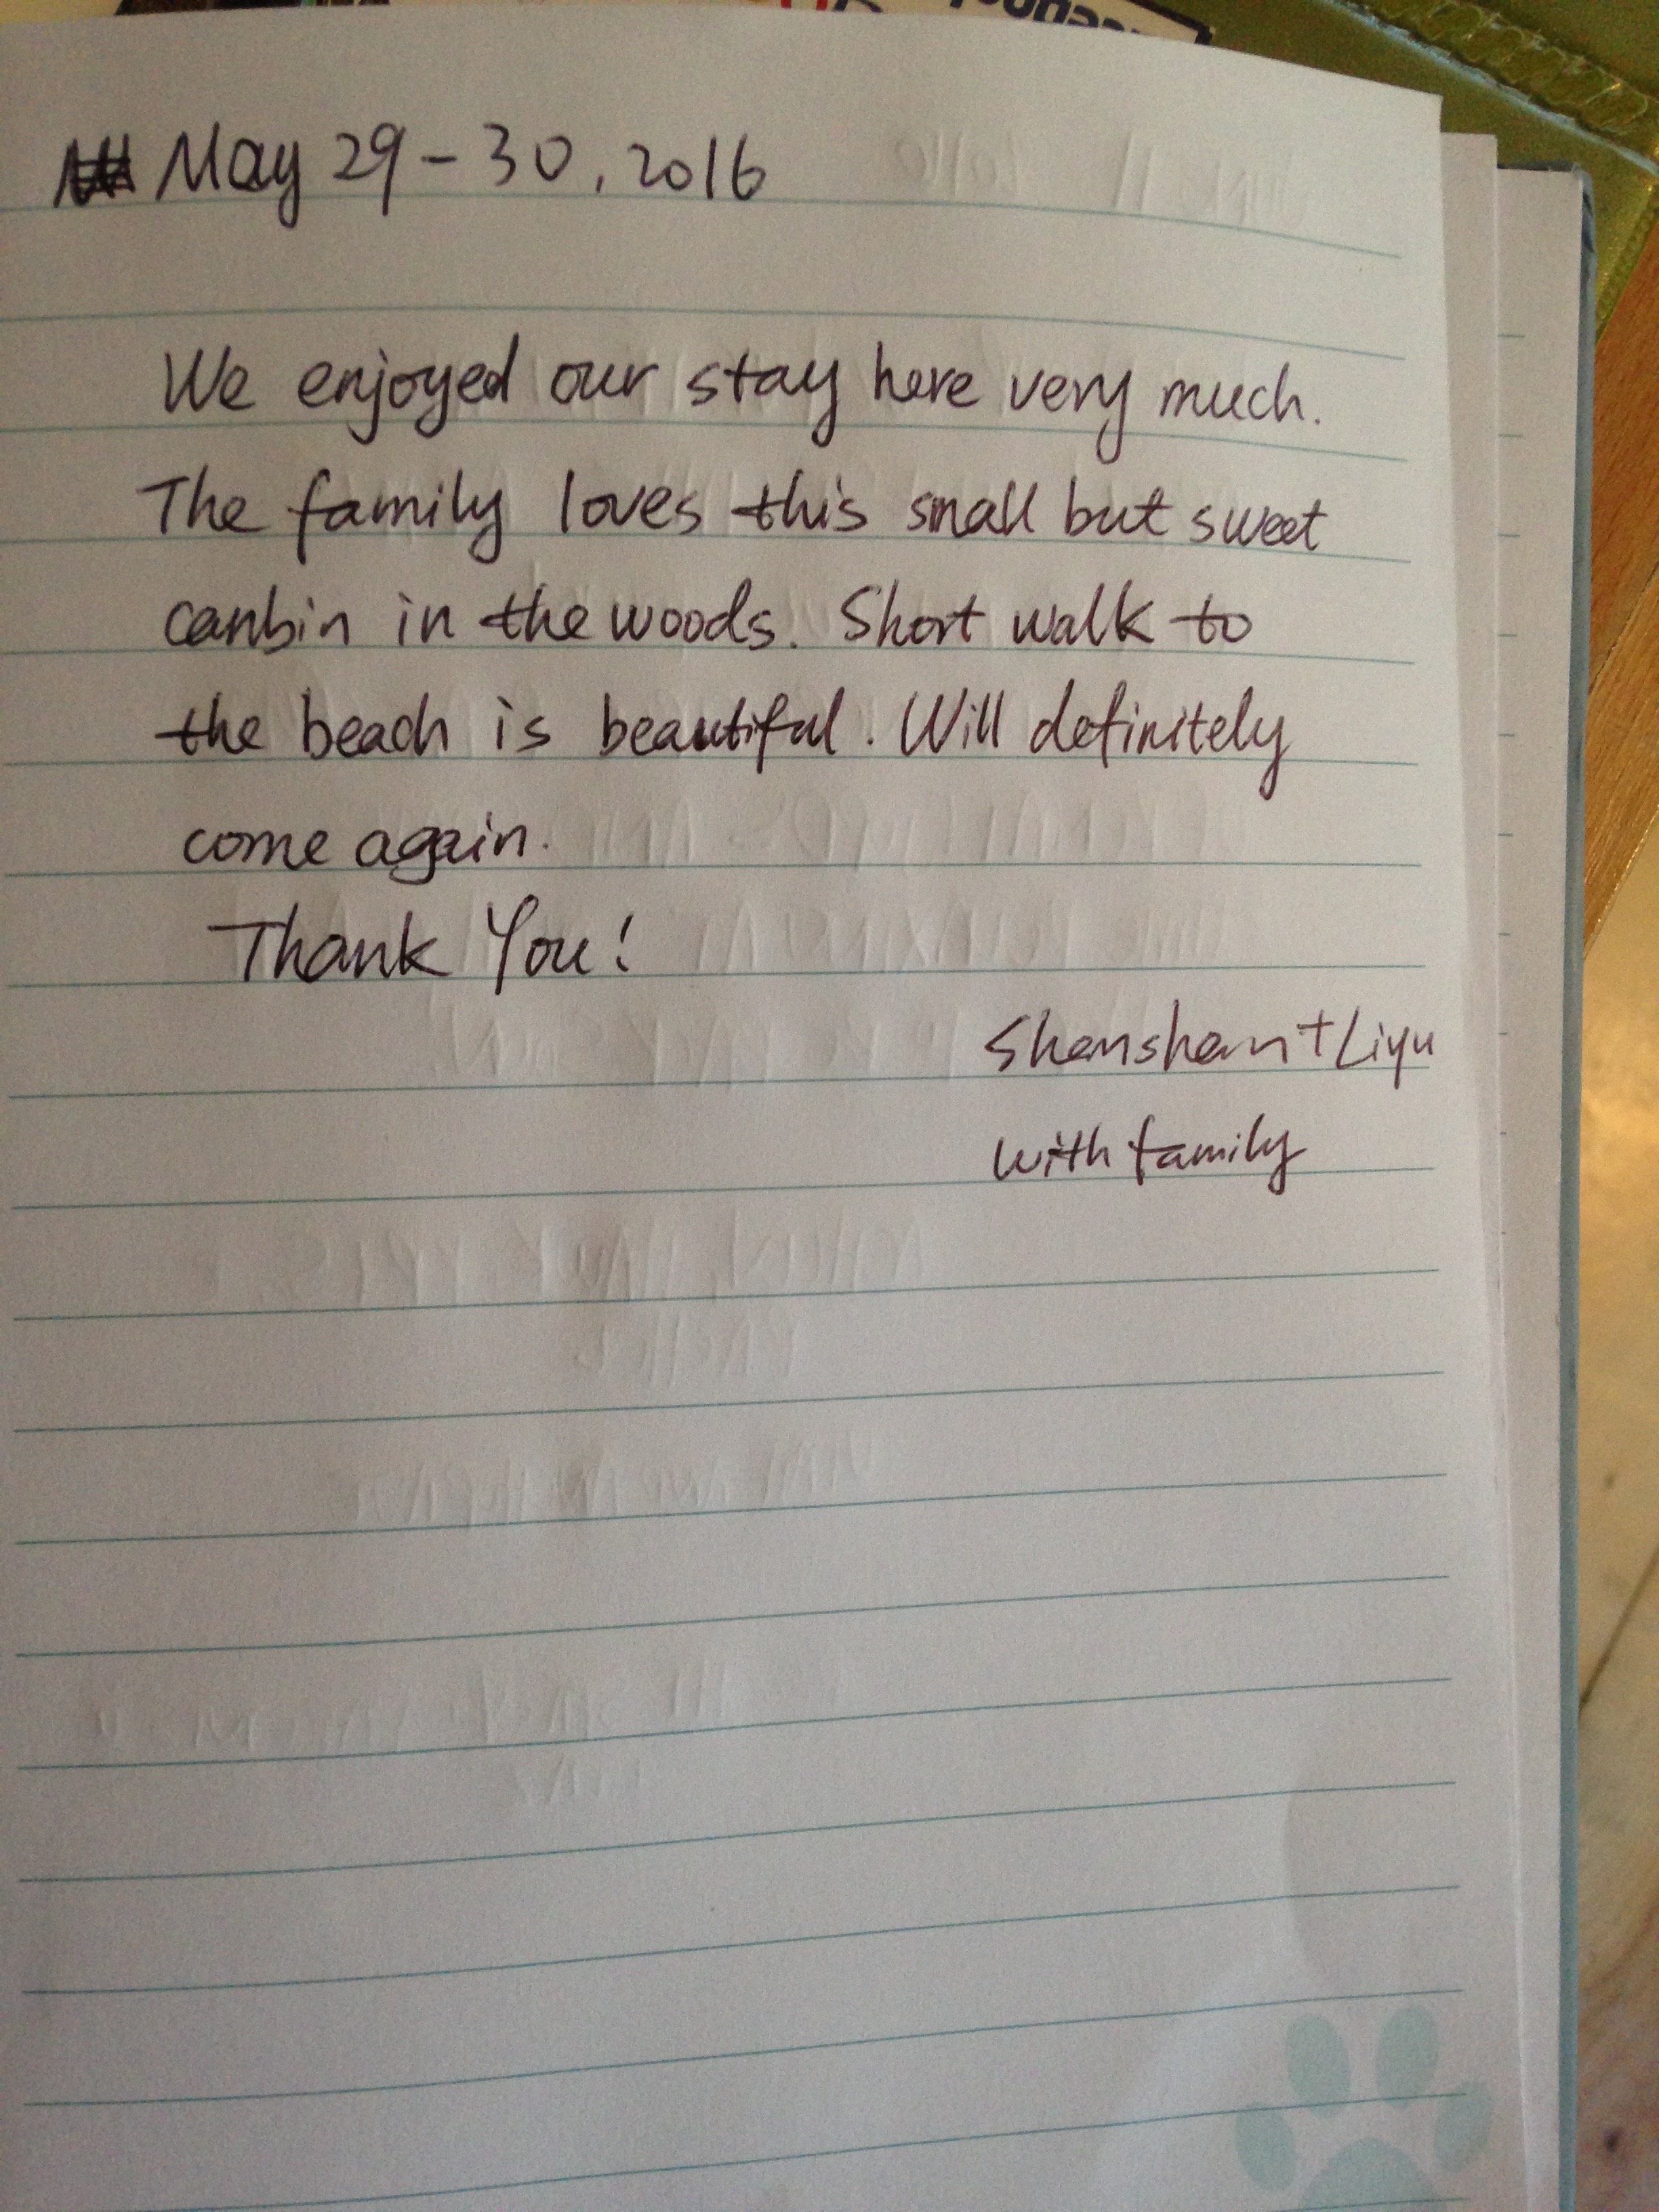 May 29-30, 2016
We enjoyed our stay here very much.
The family loves this small but sweet
canbin in the woods. Short walk to
the beach is beautiful. Will definitely
come again.
Thank You!
Shanshan + Liyu
with family